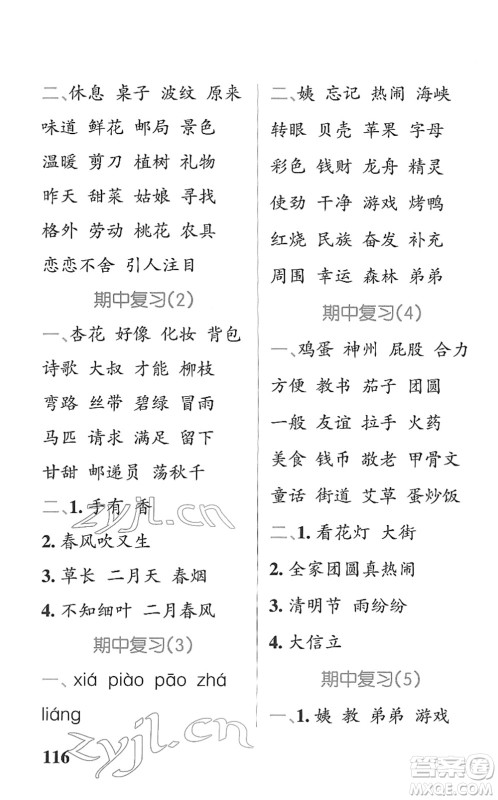 二、休息 桌子 波纹 原来
味道 鲜花 邮局 景色
温暖 剪刀 植树 礼物
昨天 甜菜 姑娘 寻找
格外 劳动 桃花 农具
恋恋不舍 引人注目
期中复习(2)
一、杏花 好像 化妆 背包
诗歌 大叔 才能 柳枝
弯路 丝带 碧绿 冒雨
马匹 请求 满足 留下
甘甜 邮递员 荡秋千
二、1. 手有 香
2. 春风吹又生
3. 草长 二月天 春烟
4. 不知细叶 二月春风
期中复习(3)
一、xiá piào pāo zhá
liáng
116
二、姨 忘记 热闹 海峡
转眼 贝壳 苹果 字母
彩色 钱财 龙舟 精灵
使劲 干净 游戏 烤鸭
红烧 民族 奋发 补充
周围 幸运 森林 弟弟
期中复习(4)
一、鸡蛋 神州 屁股 合力
方便 教书 茄子 团圆
一般 友谊 拉手 火药
美食 钱币 敬老 甲骨文
童话 街道 艾草 蛋炒饭
二、1. 看花灯 大街
2. 全家团圆真热闹
3. 清明节 雨纷纷
4. 大信立
期中复习(5)
一、1. 姨 教 弟弟 游戏
zyjl.cn
zyjl.cn
答案圈
MXQE.COM